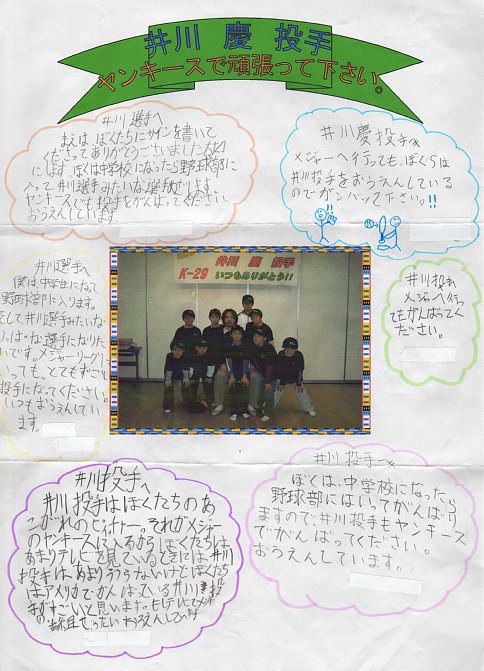 井川 慶 投手
ヤンキースで頑張って下さい。
井川 選手へ
まえは、ぼくたちにサインを書いて
くださってありがとうございました。
にします。ぼくは中学校になったら野球部に
入って井川選手みたいな選手
ヤンキースでも投手をがんばってください。
おうえんしています。
井川慶投手へ
メジャーへ行っても、ぼくらは
井川投手をおうえんしている
のでガンバッて下さい。!!
井川選手へ
僕は中学生になって
野球部に入ります。
そして井川選手みたいな
りっぱな選手になりたい
です。メジャーリーグに
いっても、とてもすごい
投手になってください。
いつもおうえんしてい
ます。
井川 慶 投手
K-29 いつもありがとう!!
井川投手
メジャーへ行っ
てもがんばってく
ださい。
井川投手へ
井川投手はぼくたちのあ
こがれのピッチャー。それがメジャー
のヤンキースに入るから、ぼくたちは
あまりテレビを見ているときには井川
投手は、あまりうつらないけどぼくたち
はアメリカでがんばっている井川投
手がすごいと思います。
井川 投手へ
ぼくは、中学校になったら
野球部にはいってがんばり
ますので井川投手もヤンキース
でがんばってください。
おうえんしています。